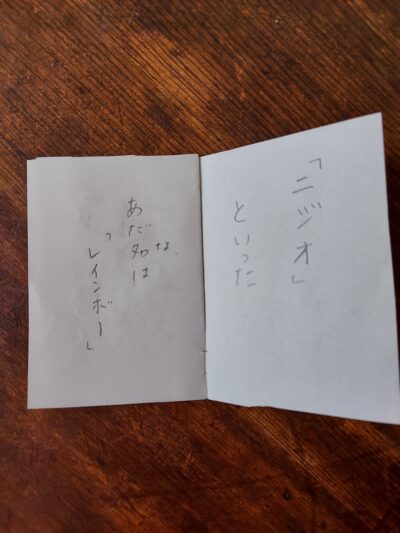 「ニジオ」
といった
あだ名は
な
「レインボー」